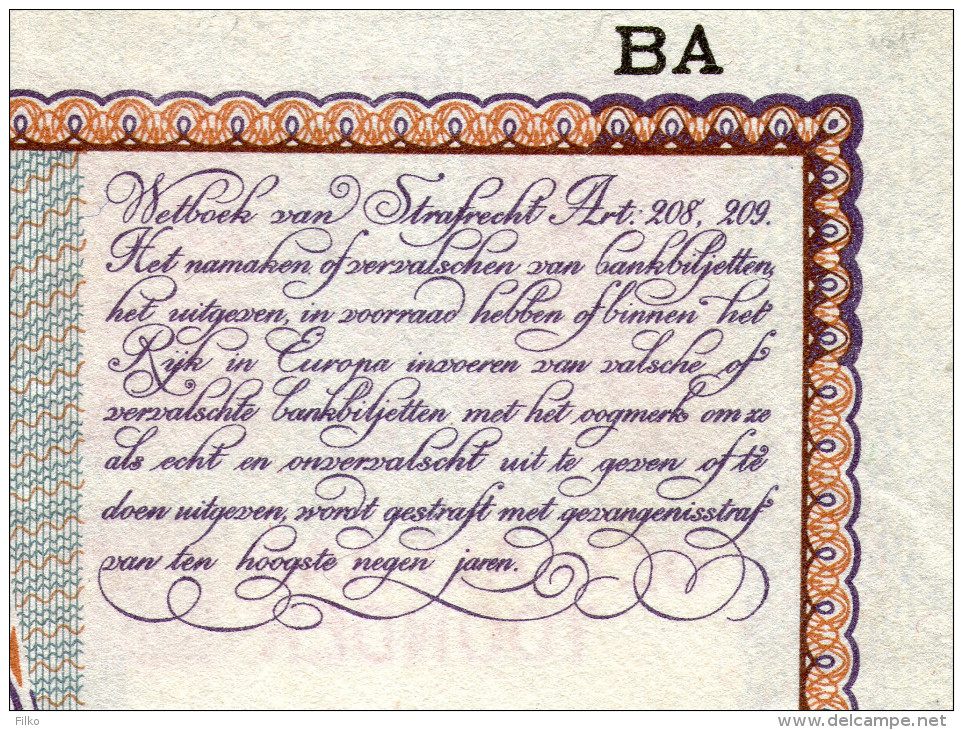 BA
Wetboek van Strafrecht Art: 208, 209.
Het namaken of vervalschen van bankbiljetten,
het uitgeven, in voorraad hebben of binnen het
Rijk in Europa invoeren van valsche of
vervalschte bankbiljetten met het oogmerk om ze
als echt en onvervalscht uit te geven of te
doen uitgeven, wordt gestraft met gevangenisstraf
van ten hoogste negen jaren.
Filko
www.delcampe.net